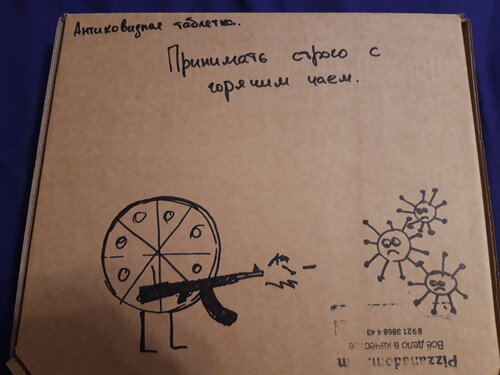 Антиковидная таблетка.
Принимать строго с
горячим чаем.
Всё дело в качестве
8 921 3868 4 43